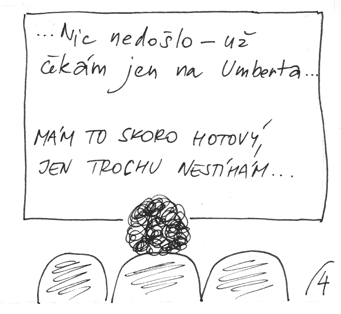 ...Nic nedošlo – už
čekám jen na Umberta...
MÁM TO SKORO HOTOVÝ,
JEN TROCHU NESTÍHÁM...
/4